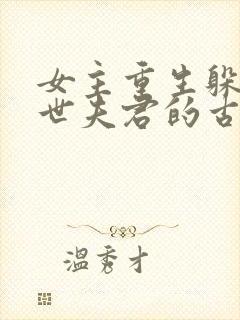 女主重生躲
世夫君的古
温秀才